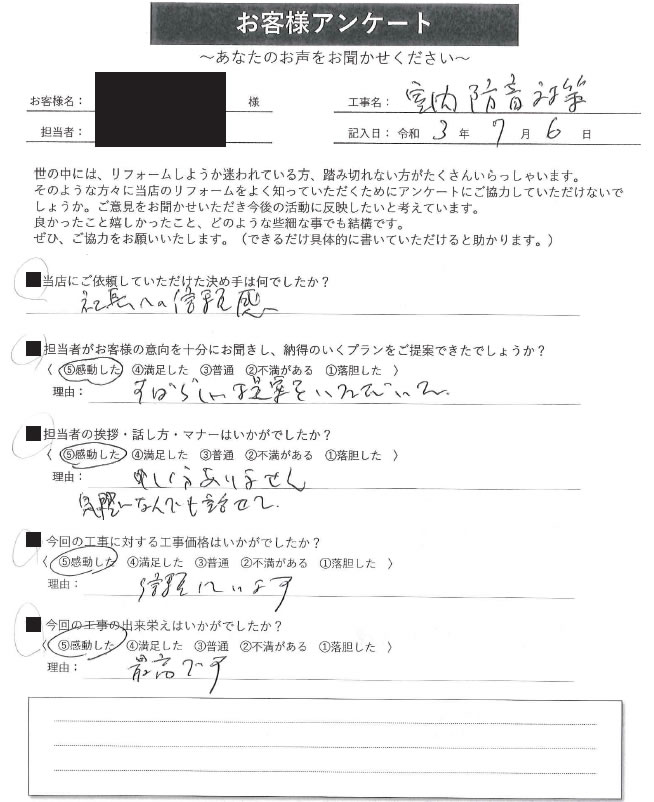 お客様アンケート
～あなたのお声をお聞かせください～
お客様名： 様 工事名： 室内防音対策
担当者： 記入日： 令和 3 年 7 月 6 日
世の中には、リフォームしようか迷われている方、踏み切れない方がたくさんいらっしゃいます。
そのような方々に当店のリフォームをよく知っていただくためにアンケートにご協力していただけないで
しょうか。ご意見をお聞かせいただき今後の活動に反映したいと考えています。
良かったこと嬉しかったこと、どのような些細な事でも結構です。
ぜひ、ご協力をお願いいたします。（できるだけ具体的に書いていただけると助かります。）
■当店にご依頼していただけた決め手は何でしたか？
社長への信頼感
■担当者がお客様の意向を十分にお聞きし、納得のいくプランをご提案できたでしょうか？
〈 ⑤感動した ④満足した ③普通 ②不満がある ①落胆した 〉
理由： すばらしい提案をいただいた。
■担当者の挨拶・話し方・マナーはいかがでしたか？
〈 ⑤感動した ④満足した ③普通 ②不満がある ①落胆した 〉
理由： 申し分ありません
気軽になんでも話せて。
■今回の工事に対する工事価格はいかがでしたか？
〈 ⑤感動した ④満足した ③普通 ②不満がある ①落胆した 〉
理由： 信頼しています
■今回の工事の出来栄えはいかがでしたか？
〈 ⑤感動した ④満足した ③普通 ②不満がある ①落胆した 〉
理由： 最高です